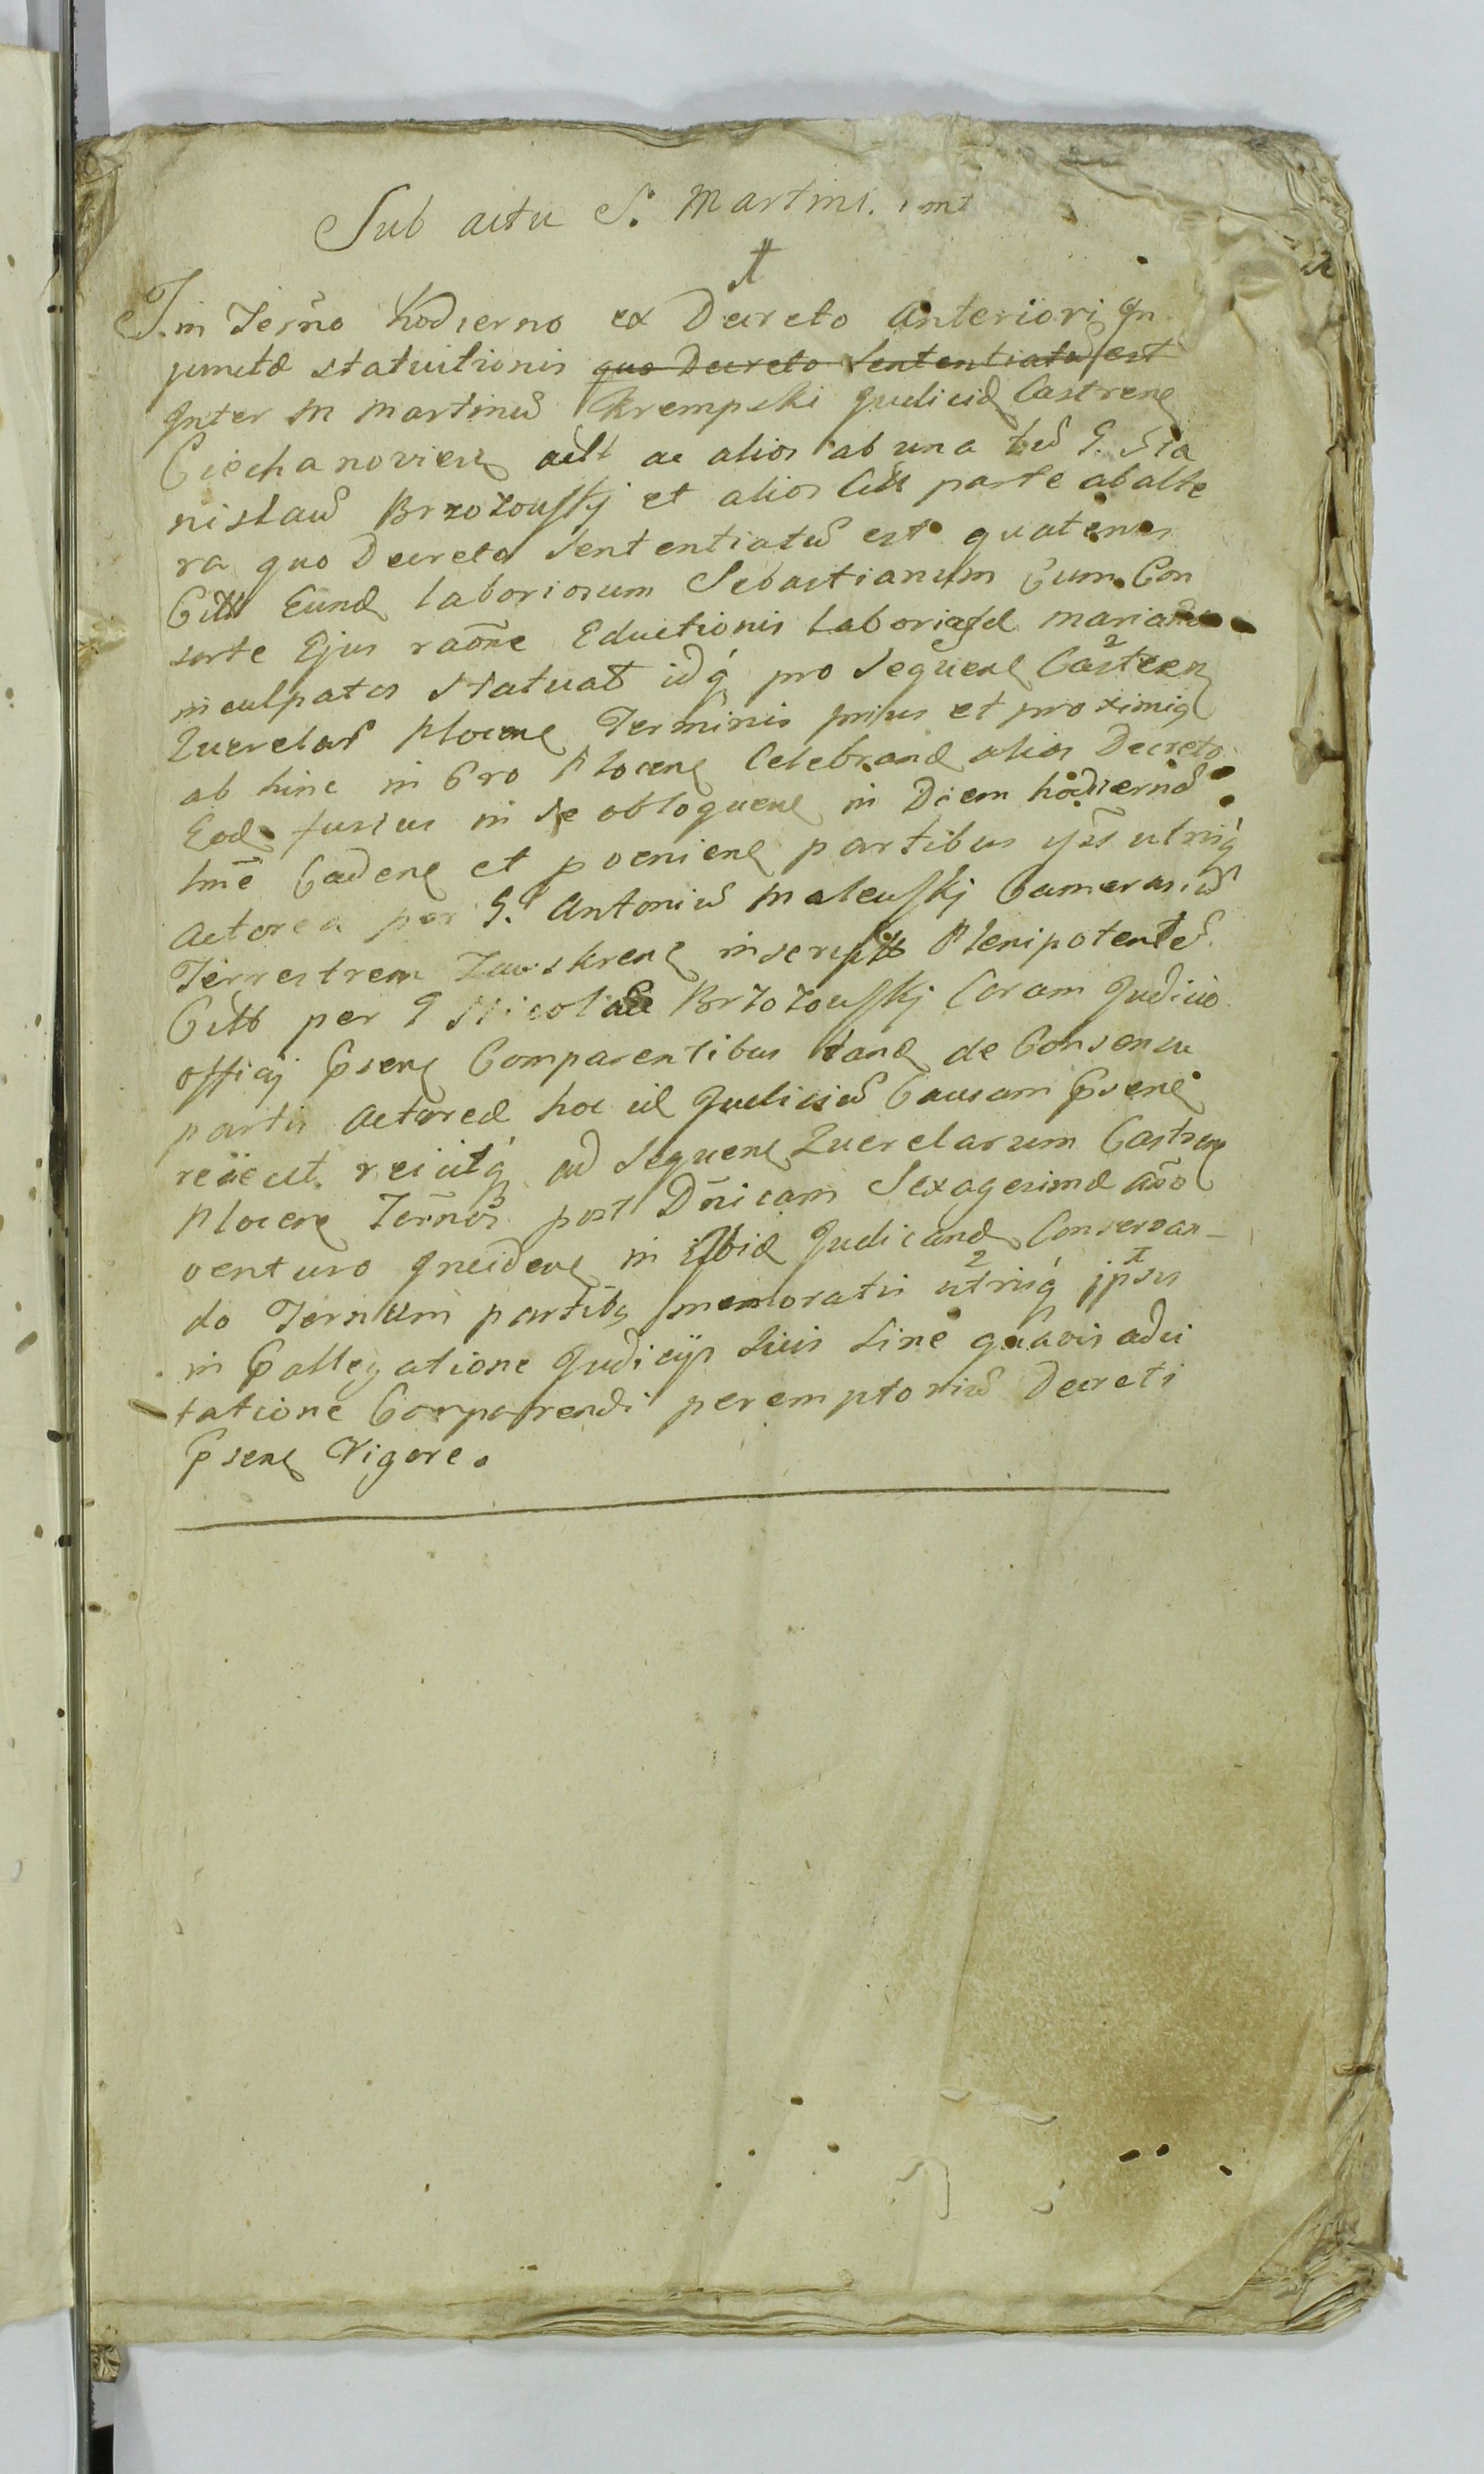 Sub actu S. Martini.
In Terno hodierno ex Decreto Anteriori In
junctæ statuitionis quo Decreto Sententiatū est
Inter M Martinū Krempski Judicē Castrens
Ciechanoviens act ac alios ab una tū G. Sta
nislaū Brzozouskj et alios Citt parte ab alte
ra quo Decreto Sententiatū est quatenus
Citti Eund laboriosum Sebastianum Cum Con
sorte Ejus raōne Eductionis Laboriosæ Maria
inculpatos Statuat idq pro Sequens Castren
Querelar Plocens Terminis prius et proximis
ab hinc in Cro Plocens Celebrand alias Decreto
Eod fusius in se obloquens in Diem hodiernū
tmē Cadens et poeniens partibus ipsis utrisq
Actorea per G. Antoniū Maleuskj Camerariū
Terrestrem Zauskrens inscript Plenipotentē
Citta per G Nicolaū Brzozouskj Coram Judicio
officij Psens Comparentibus tand de Consensu
partis Actoreæ hoc id Judiciū Causam Psens
reiicit reiicitq ad Sequens Querelarum Castren
Plocens Ternos post Dnicam Sexagesimæ año
venturo Incidens in ibid Judicand Conservan-
do Ternum partibq memoratis utrisq ipsis
in Pallegatione Judicijs Suis Sine quavis adci
tatione Comparendi peremptoriū Decreti
Psens Vigore.